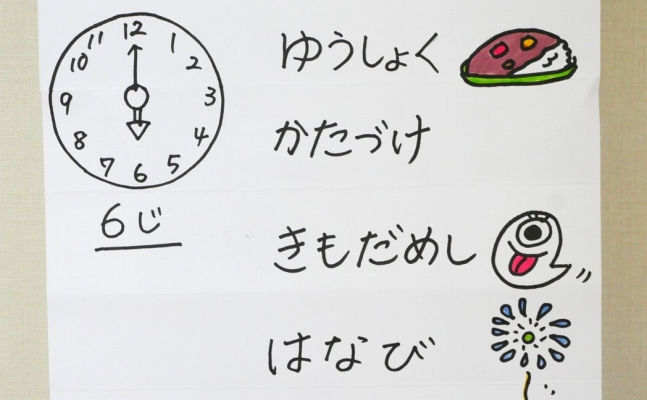 12
11 1
10 2
9 3
8 4
7 5
6
6じ
ゆうしょく
かたづけ
きもだめし
はなび